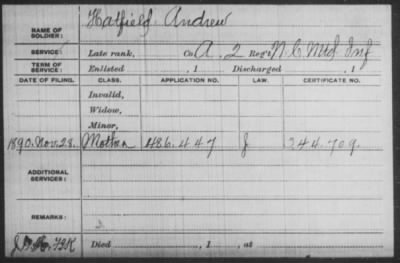 NAME OF SOLDIER: Hatfield, Andrew
SERVICE: Late rank, Co A, 2 Reg't N.C. Mtd Inf
TERM OF SERVICE: Enlisted , 1 Discharged , 1
DATE OF FILING. CLASS. APPLICATION NO. LAW. CERTIFICATE NO.
Invalid,
Widow,
Minor,
1890. Nov. 28. Mother 486.447 J 344.709.
ADDITIONAL SERVICES:
REMARKS:
Died , 1 , at